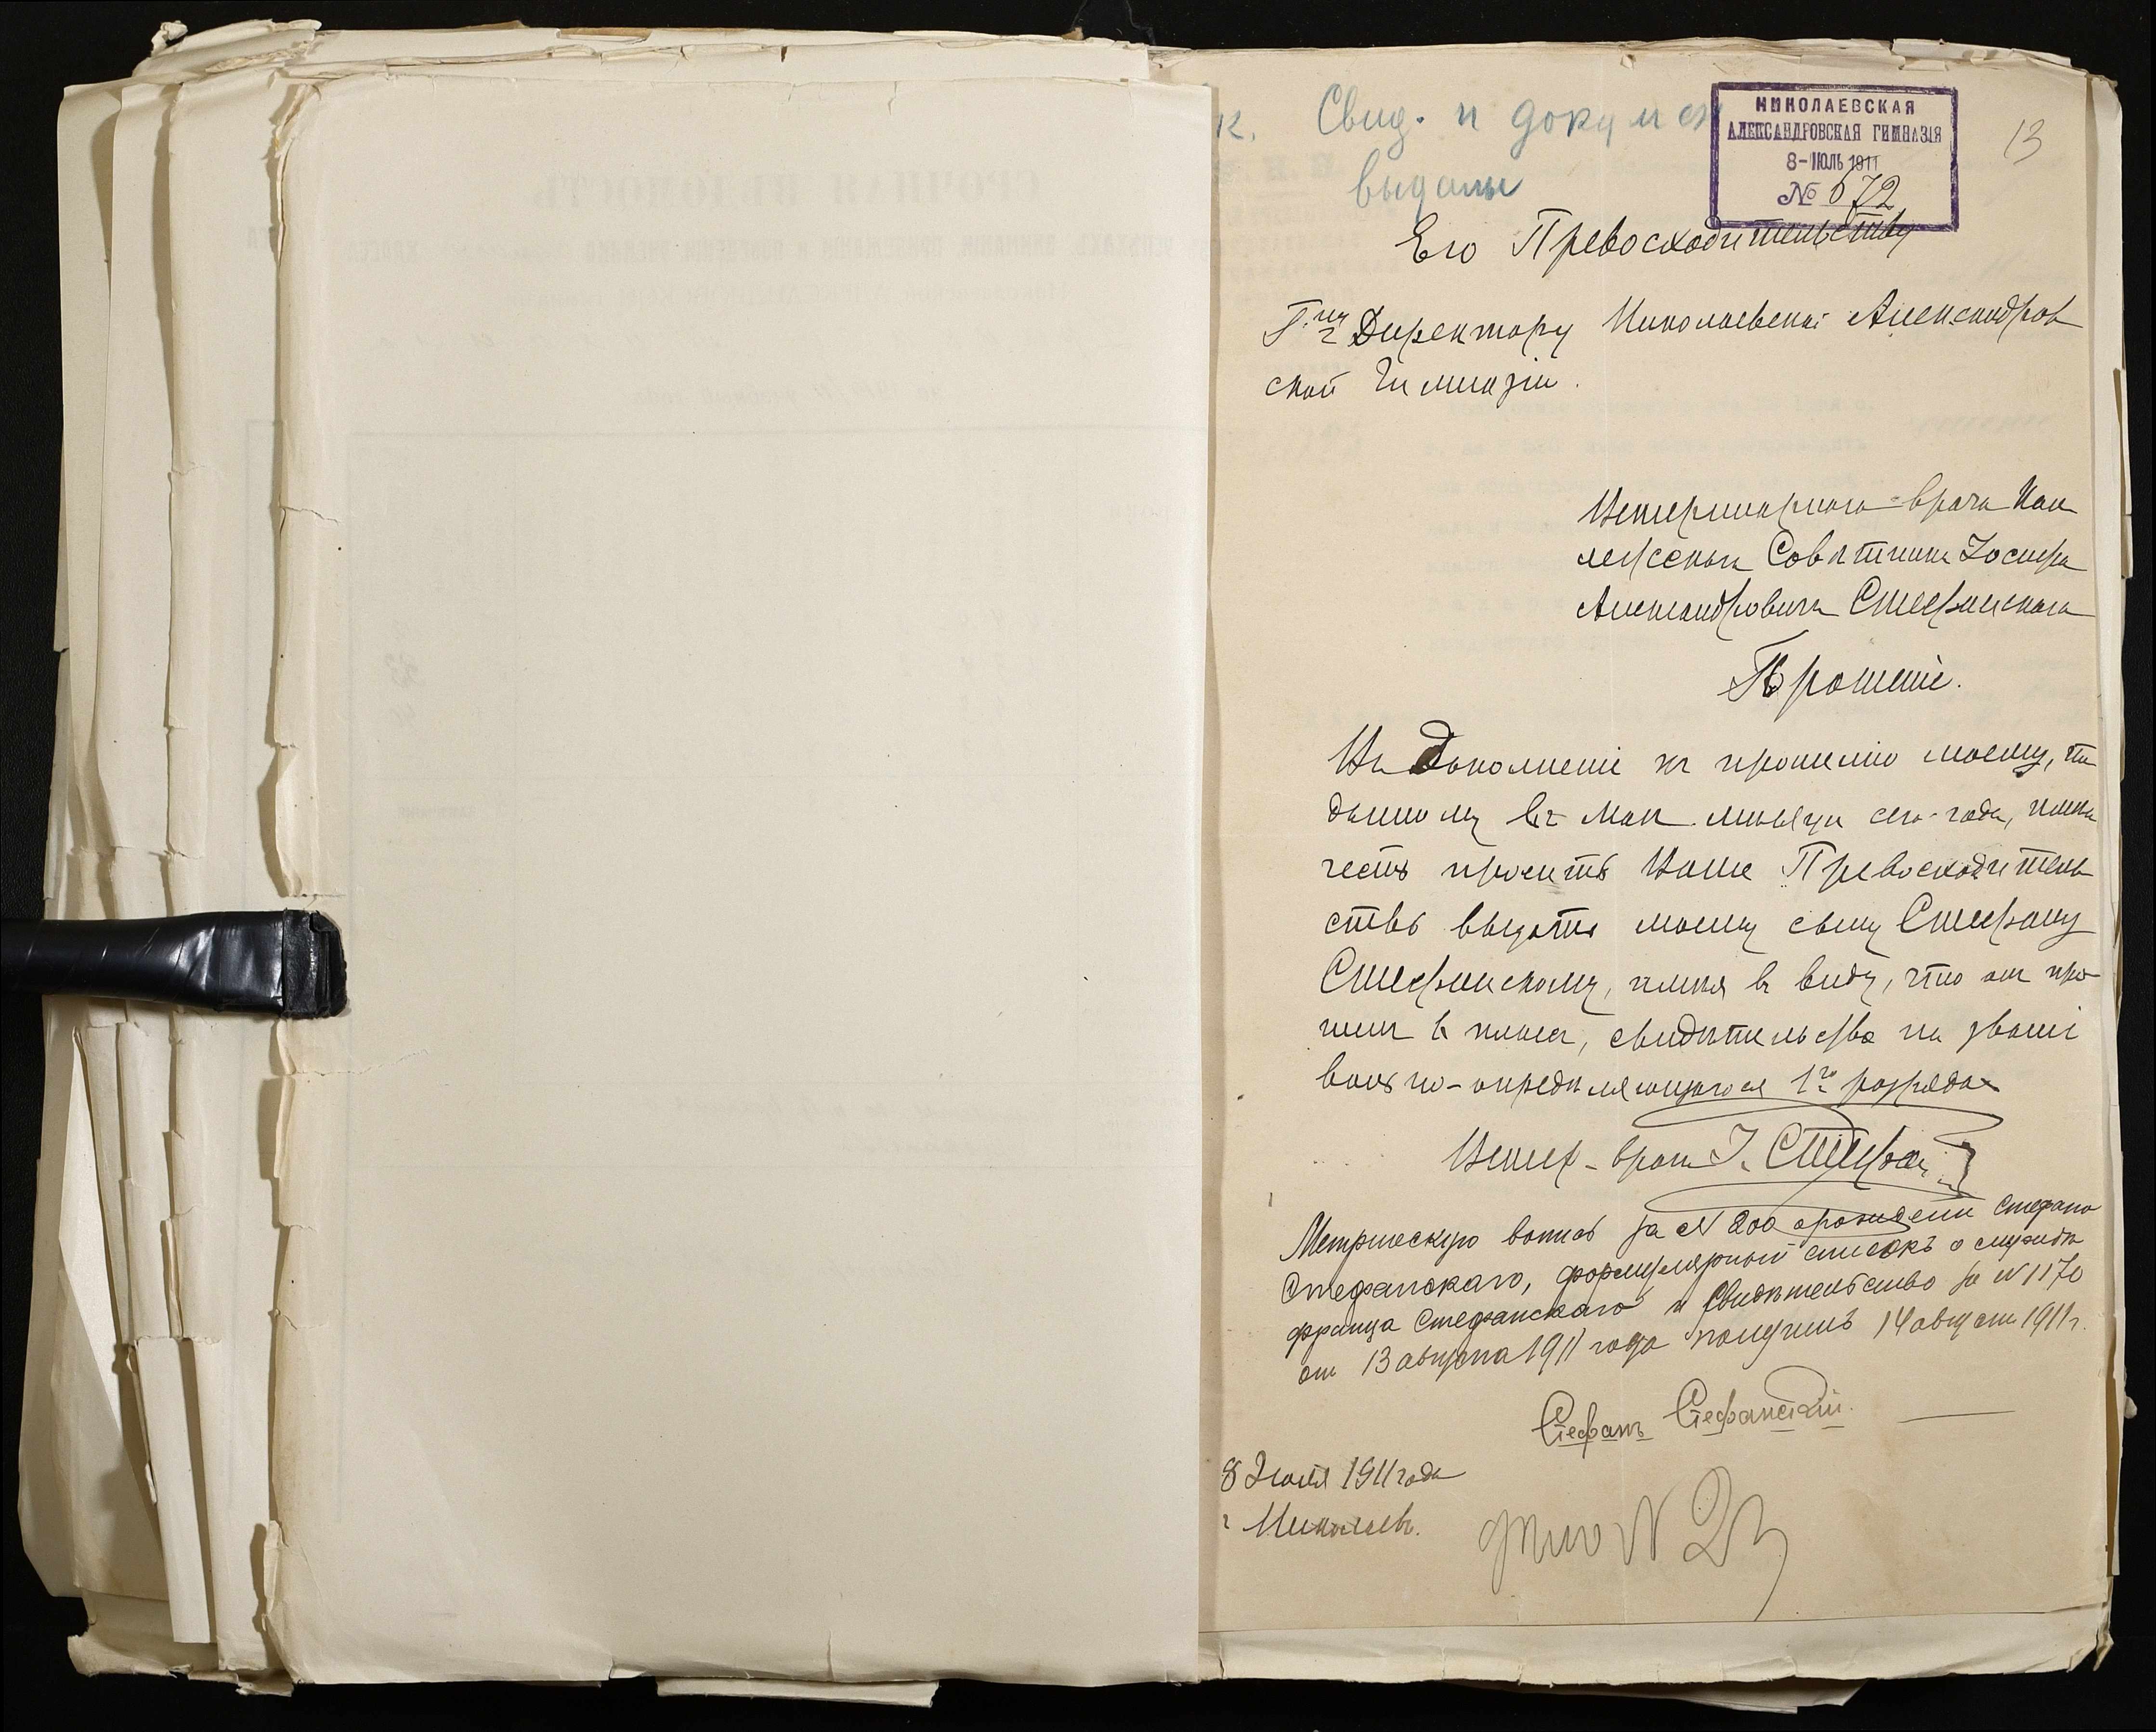 Свид. и докумен
выданы
НИКОЛАЕВСКАЯ
АЛЕКСАНДРОВСКАЯ ГИМНАЗІЯ
8-ІЮЛЬ 1911
№ 672
13
Его Превосходительству
Г-ну Директору Николаевской Александров
ской Гимназіи.
Ветеринарнаго-врача Кол
лежскаго Совѣтника Іосифа
Александровича Стефанскаго
Прошеніе.
Въ дополненіе къ прошенію моему, по
данному въ Маѣ мѣсяцѣ сего года, имѣю
честь просить Ваше Превосходитель
ство выдать моему сыну Стефану
Стефанскому, имѣя въ виду, что онъ про
шелъ 6 классъ, свидѣтельство на званіе
вольно-опредѣляющагося 1го разряда
Ветер-врачъ І. Стефан
Метрическую выпись за № 200 о рожденіи Стефана
Стефанскаго, формулярный списокъ о службѣ
Франца Стефанскаго и Свидѣтельство за № 1170
отъ 13 августа 1911 года получилъ 14 августа 1911 г.
Стефанъ Стефанскій.
8 Іюля 1911 года
г Николаевъ.